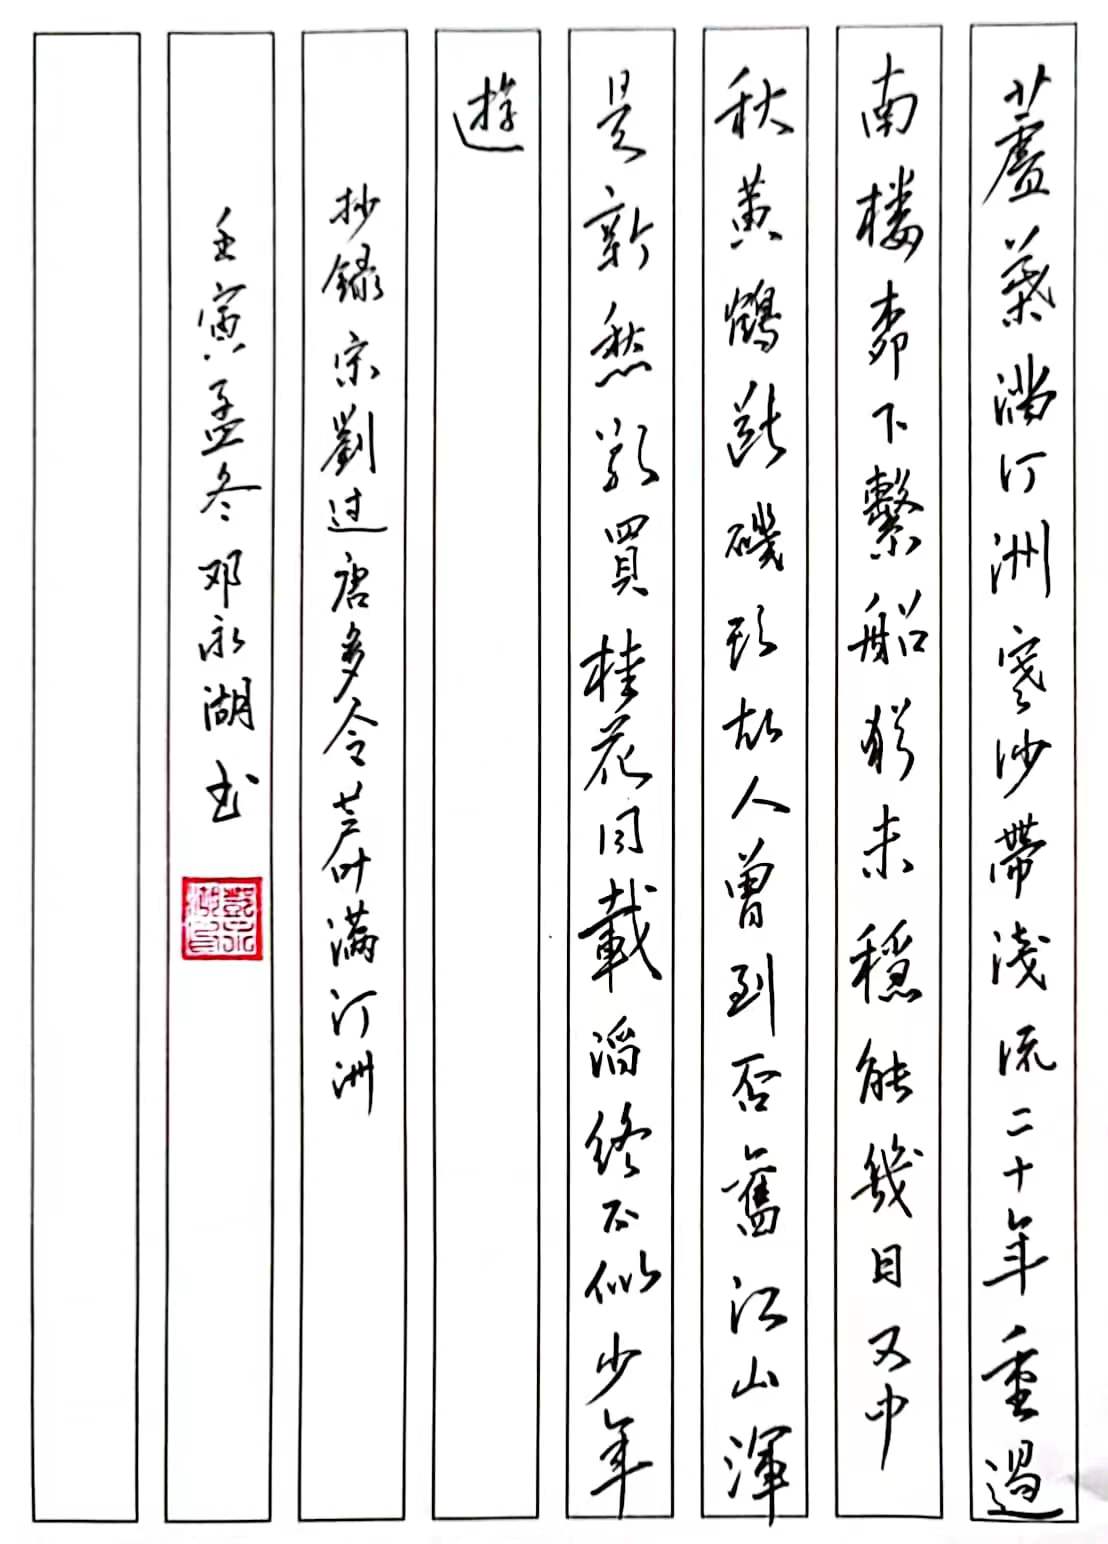 蘆葉滿汀洲寒沙帶淺流二十年重過
南樓桺下繫船猶未穩能幾日又中
秋黃鶴斷磯頭故人曾到否舊江山渾
是新愁欲買桂花同載酒終不似少年
遊
抄録宋劉过唐多令芦叶满汀洲
壬寅孟冬邓永湖书